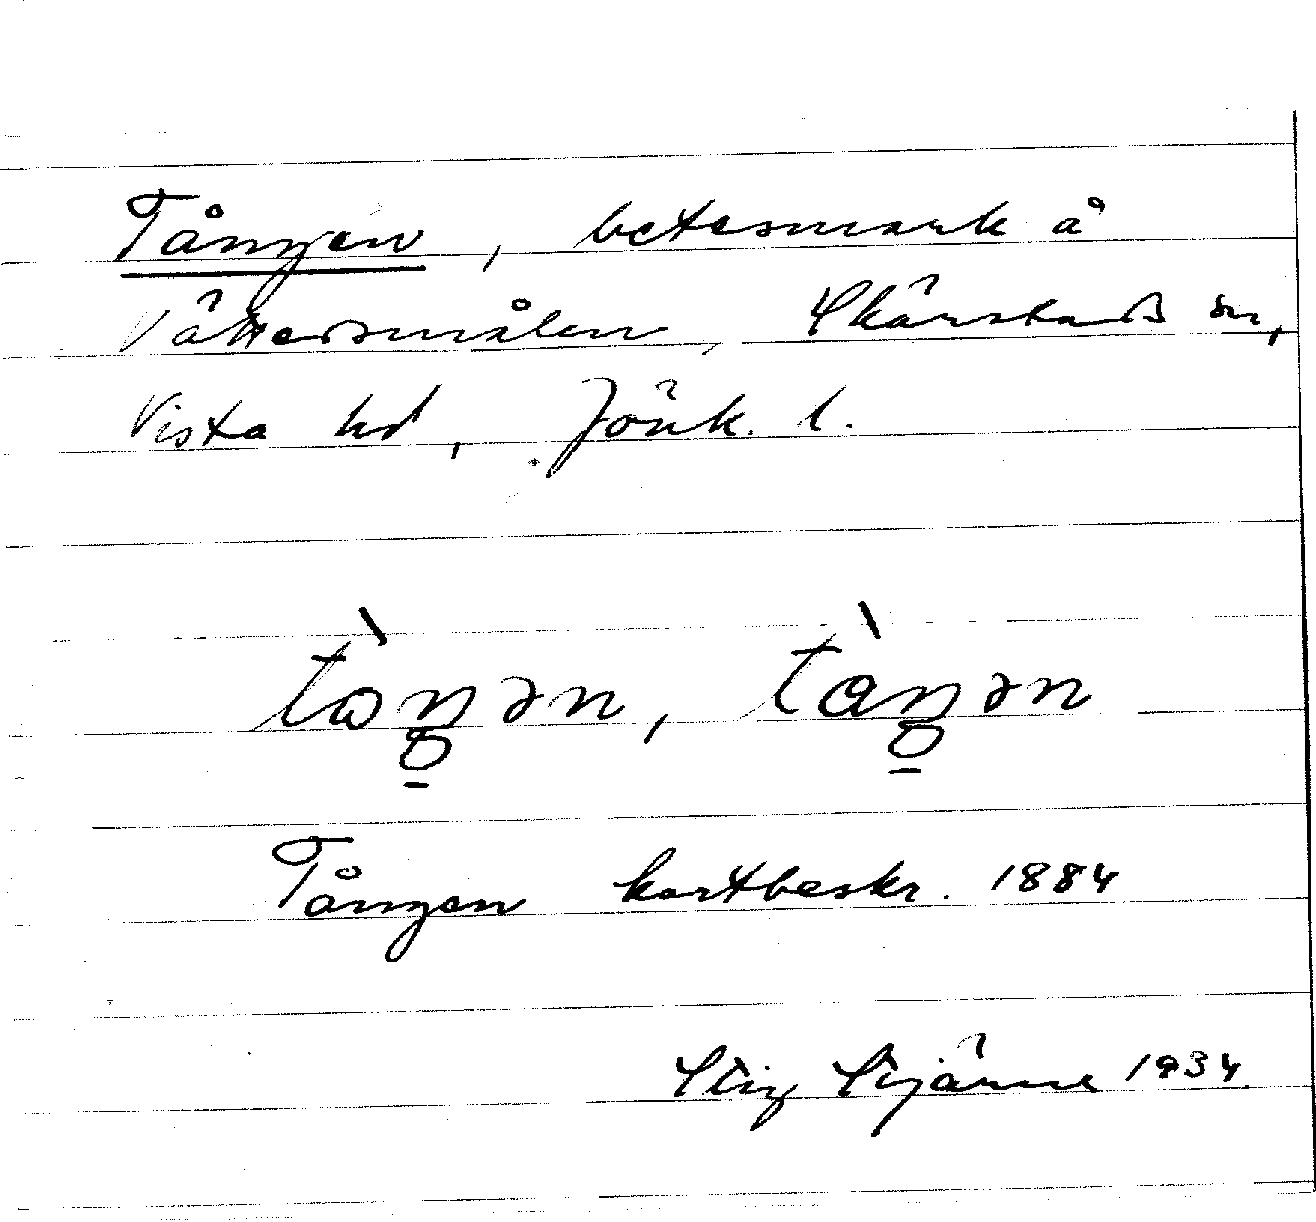 Tången, betesmark å
Vättersmålen, Skärstads sn,
Vista hd, Jönk. l.
tòŋən, tàŋən
Tången kartbeskr. 1884
Stig Stjärne 1934